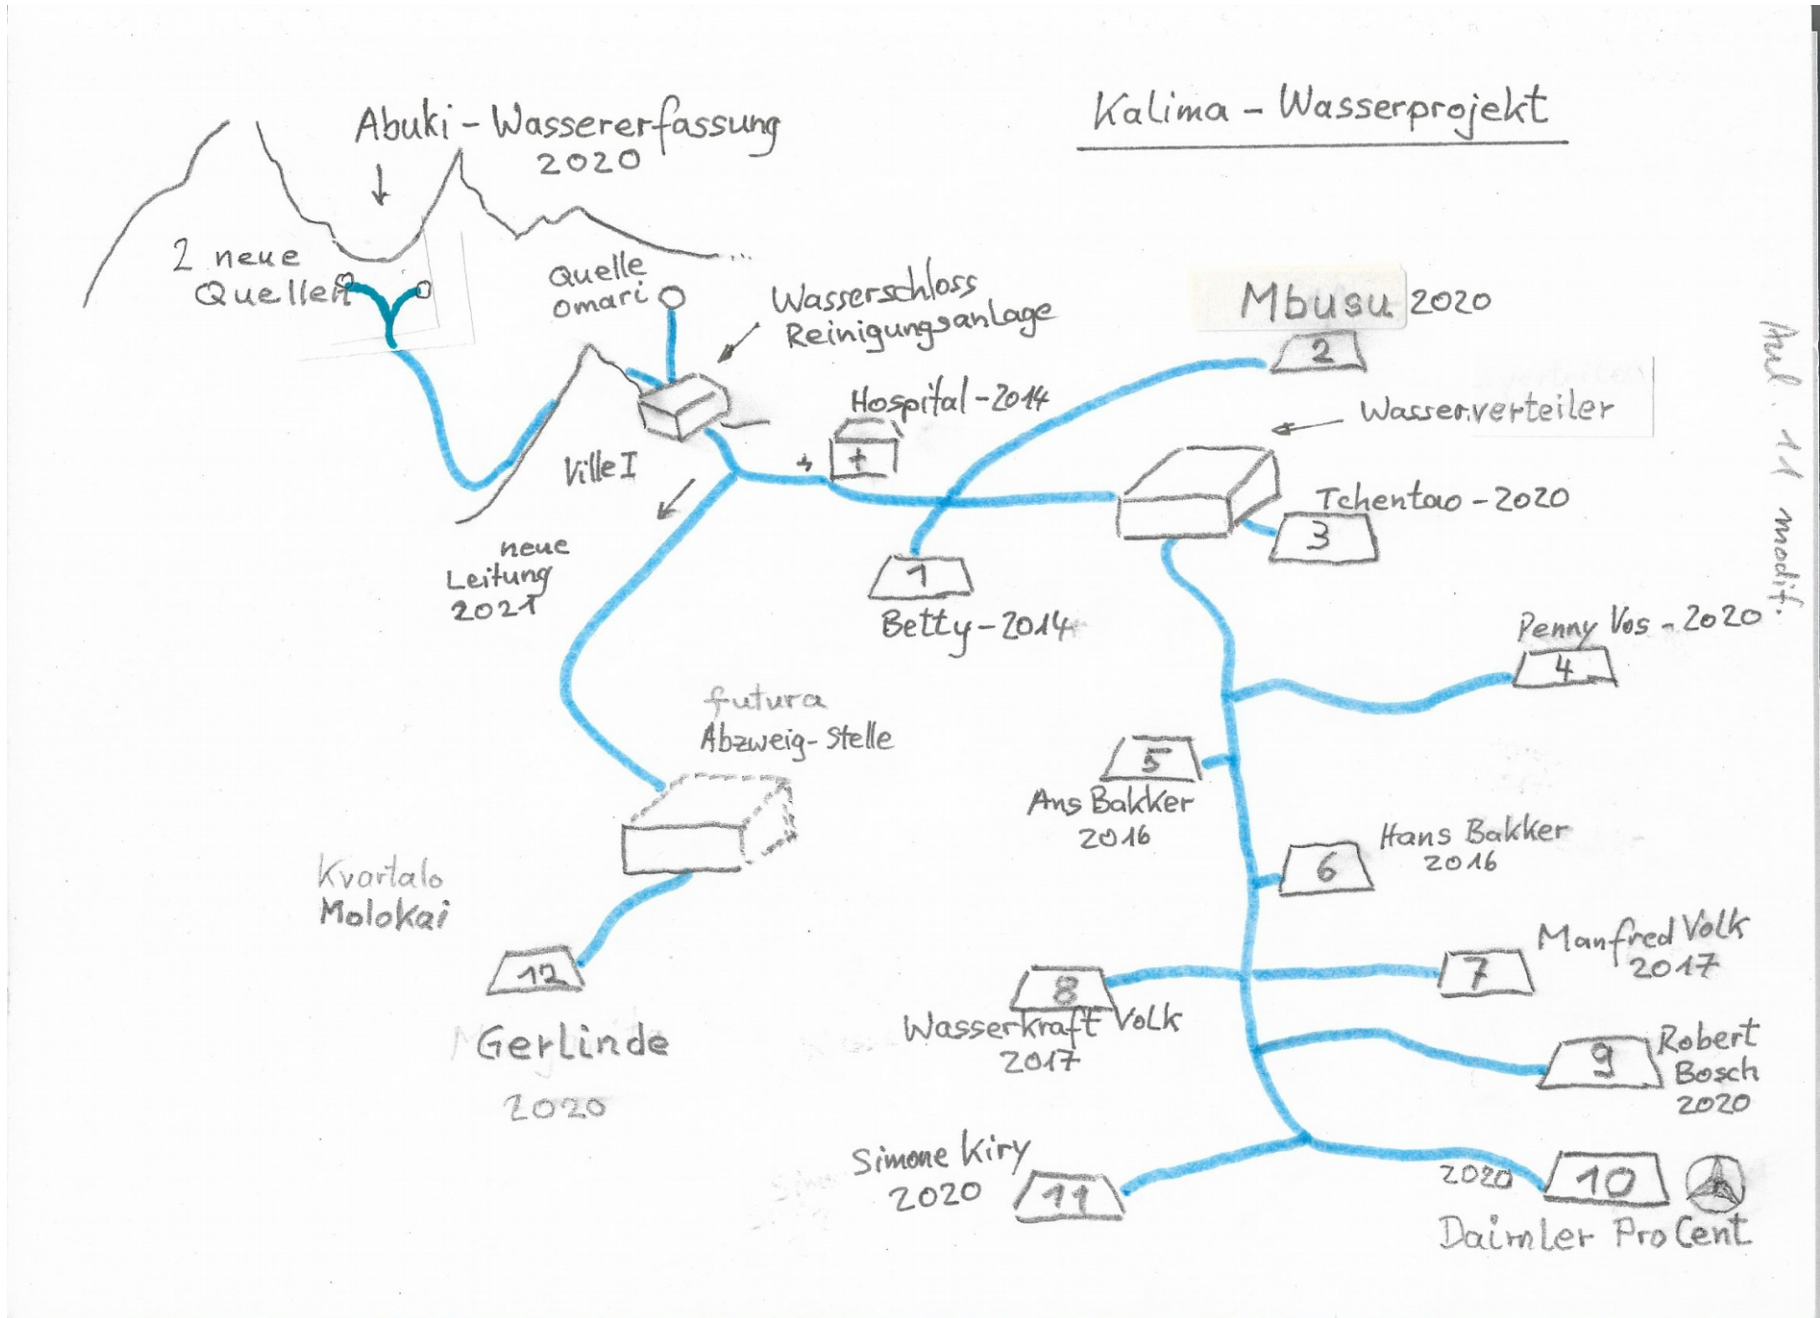 Kalima - Wasserprojekt
Abuki - Wassererfassung
2020
2 neue
Quellen
Quelle
omari
Wasserschloss
Reinigungsanlage
Mbusu 2020
2
Hospital - 2014
+
+
Wasserverteiler
Ville I
Tchentao - 2020
3
neue
Leitung
2021
1
Betty - 2014
Penny Vos - 2020
4
futura
Abzweig-Stelle
5
Ans Bakker
2016
Hans Bakker
2016
6
Kvartalo
Molokai
12
Gerlinde
2020
Manfred Volk
2017
7
8
Wasserkraft Volk
2017
Robert
Bosch
2020
9
Simone Kiry
2020
11
2020
10
Daimler ProCent
11 modif.